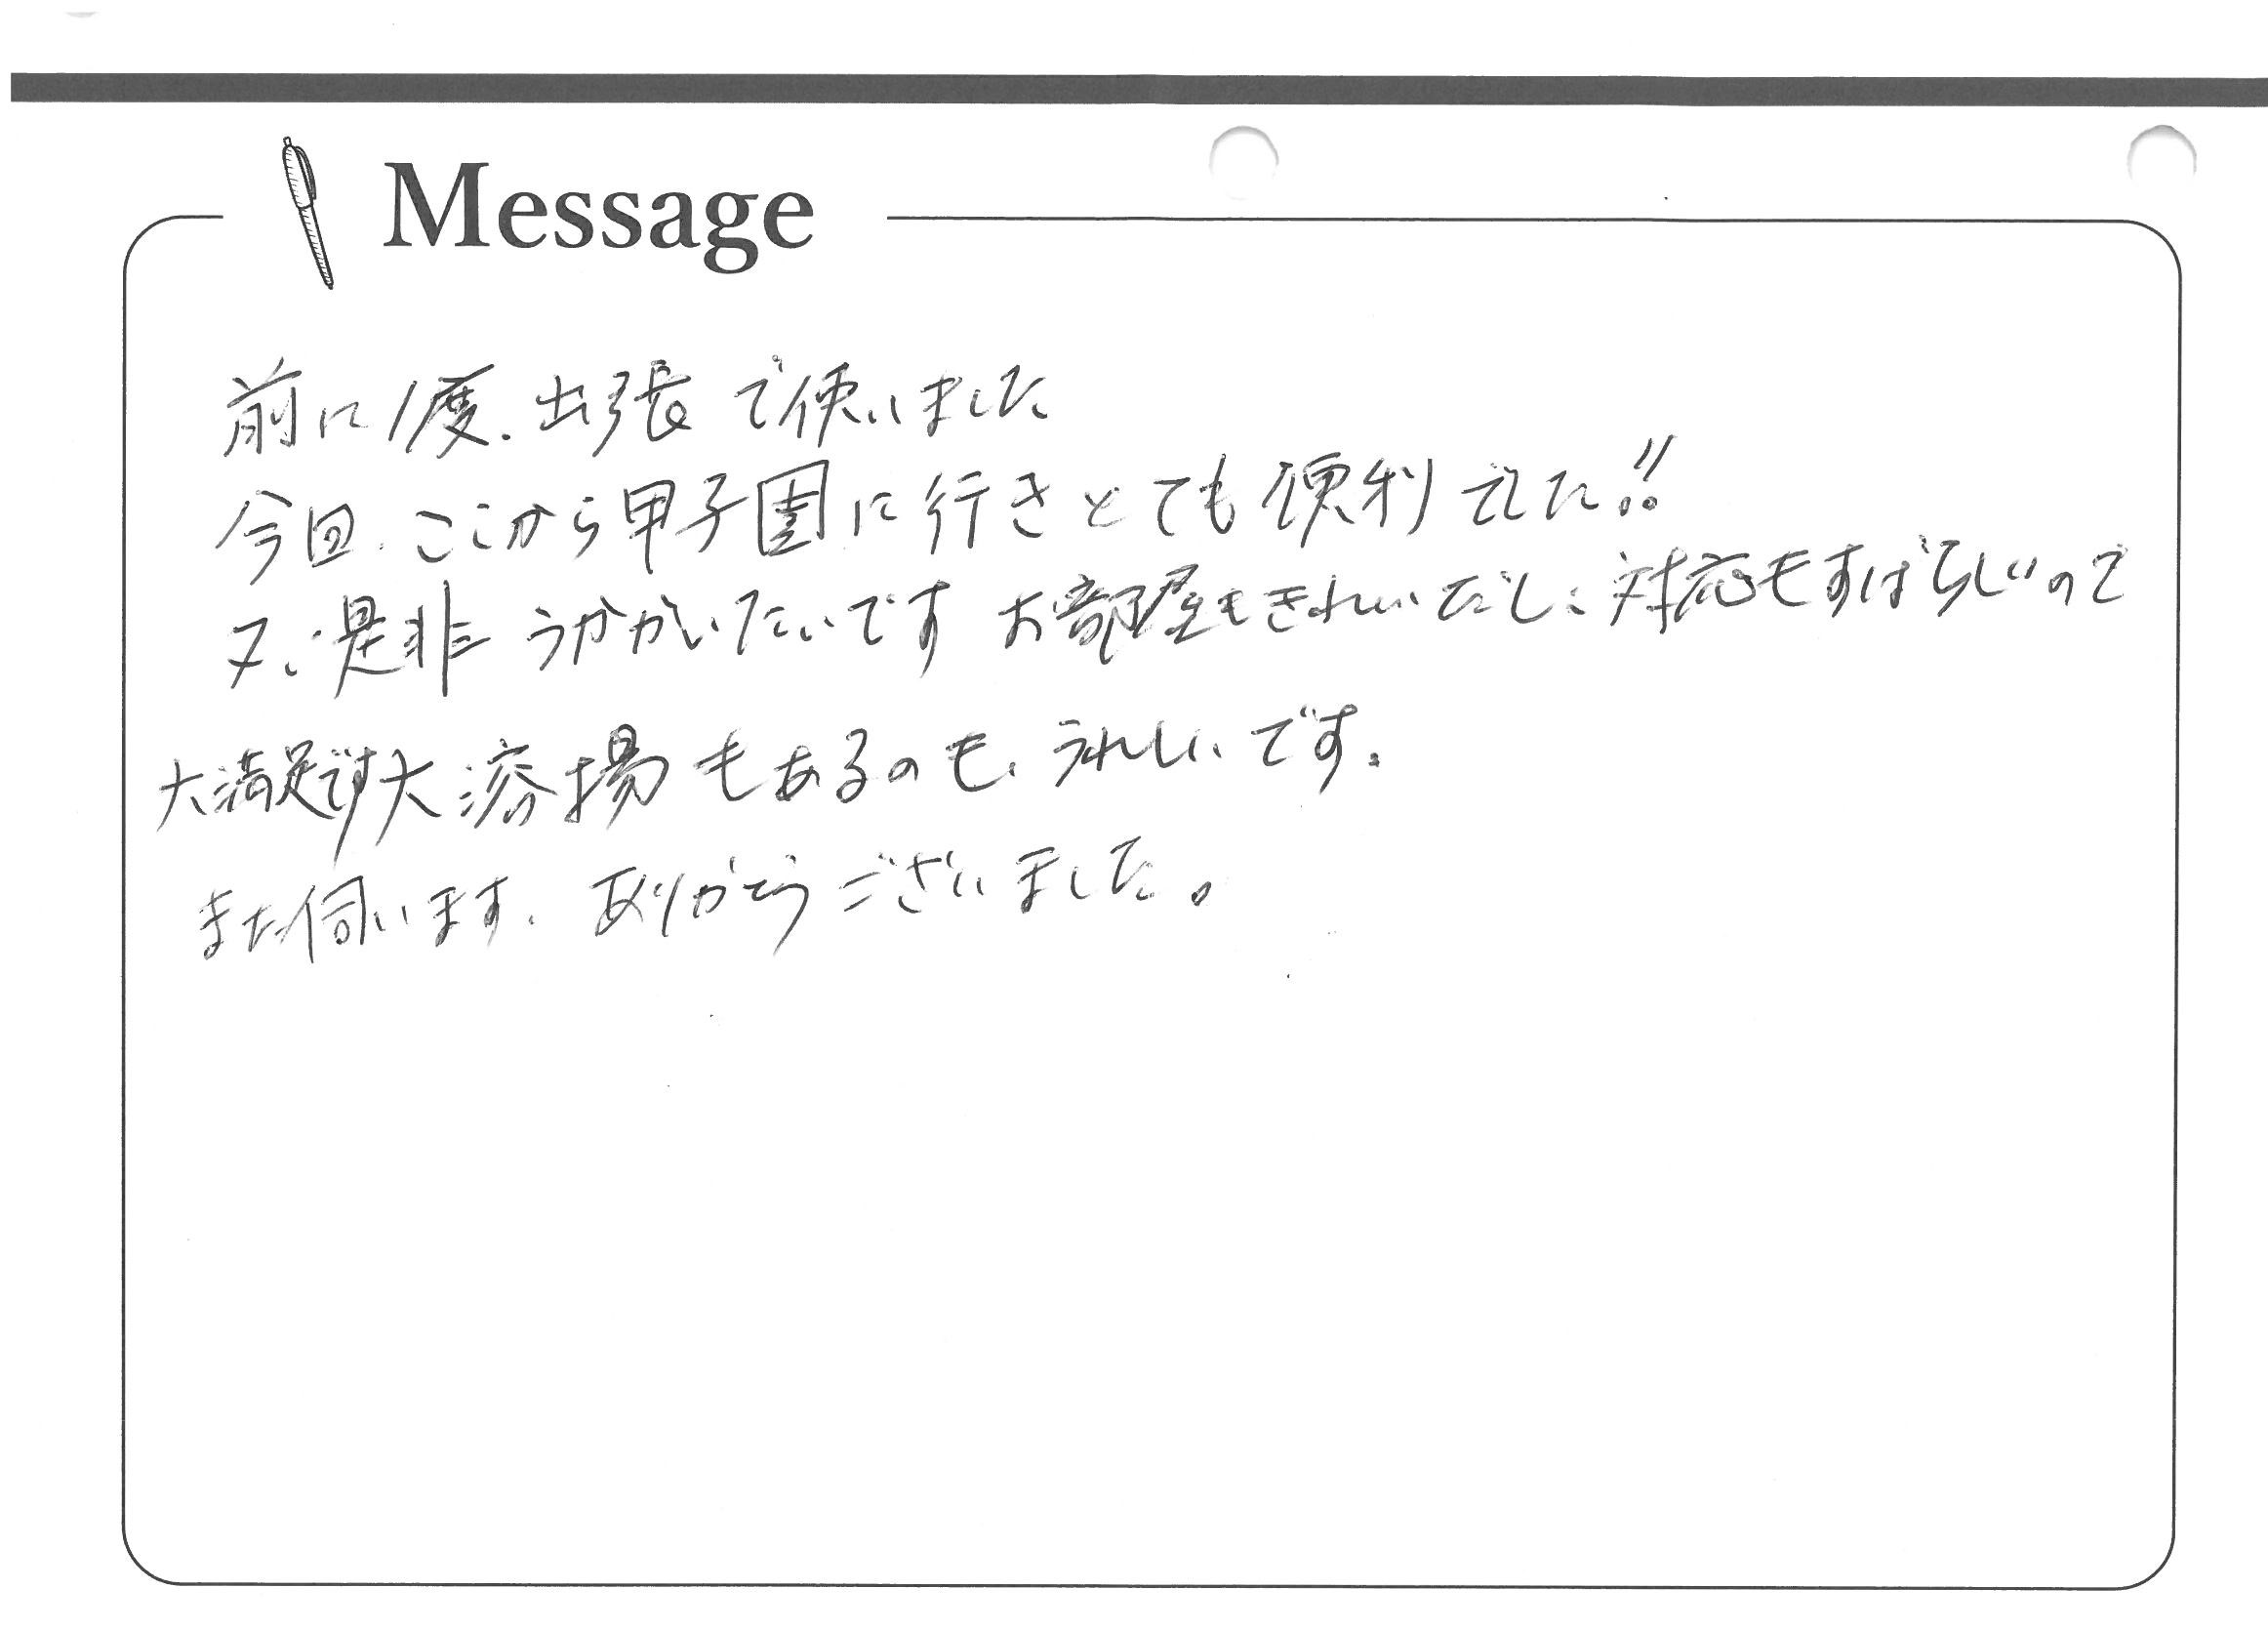 Message
前に1度、出張で使いました
今回、ここから甲子園に行きとても便利でした!!
又、是非うかがいたいです お部屋もきれいだし、対応もすばらしいので
大満足です大浴場もあるのも、うれしいです。
また伺います、ありがとうございました。